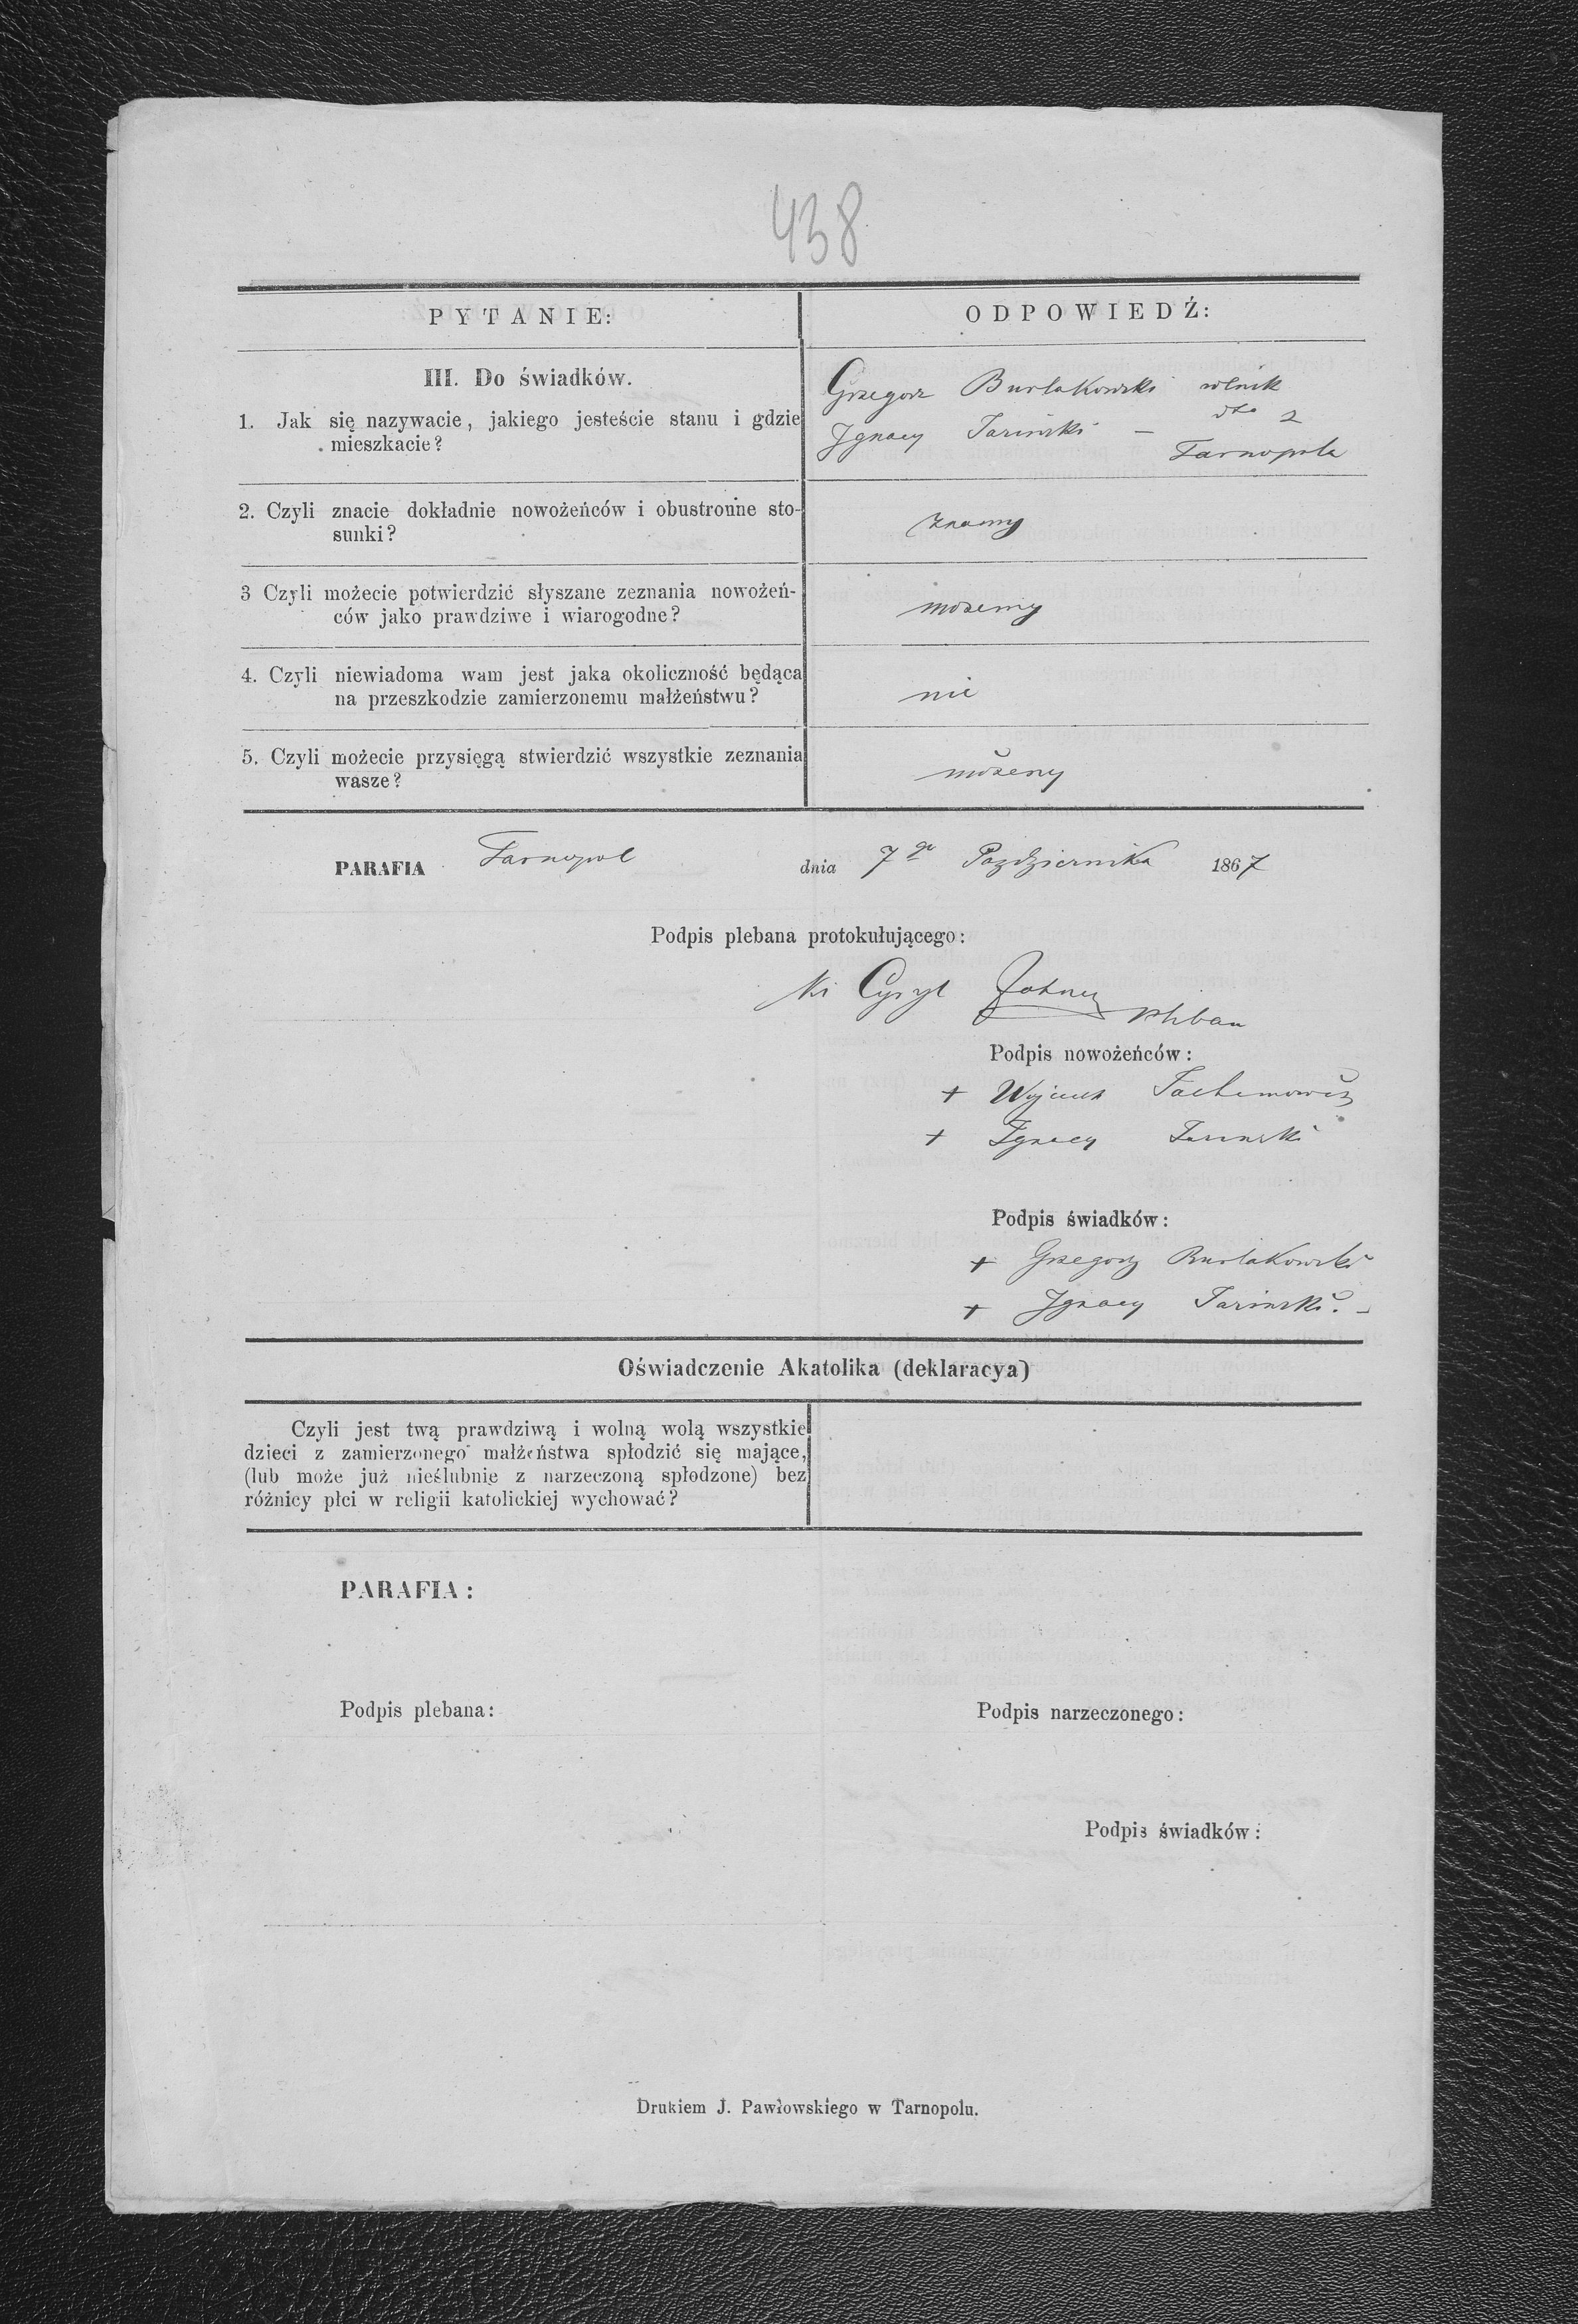 438
PYTANIE:
ODPOWIEDŹ:
III. Do świadków.
1. Jak się nazywacie, jakiego jesteście stanu i gdzie
mieszkacie?
Grzegorz Burlakowski rolnik
Ignacy Tarinski — dto z
Tarnopola
2. Czyli znacie dokładnie nowożeńców i obustronne sto-
sunki?
znamy
3 Czyli możecie potwierdzić słyszane zeznania nowożeń-
ców jako prawdziwe i wiarogodne?
możemy
4. Czyli niewiadoma wam jest jaka okoliczność będąca
na przeszkodzie zamierzonemu małżeństwu?
nie
5. Czyli możecie przysięgą stwierdzić wszystkie zeznania
wasze?
możemy
PARAFIA Tarnopol dnia 7go Października 1867
Podpis plebana protokułującego:
Cyryl pleban
Podpis nowożeńców:
+
+ Ignacy
Podpis świadków:
+ Grzegorz Burlakowski
+ Ignacy Tarinski. —
Oświadczenie Akatolika (deklaracya)
Czyli jest twą prawdziwą i wolną wolą wszystkie
dzieci z zamierzonego małżeństwa spłodzić się mające,
(lub może już nieślubnie z narzeczoną spłodzone) bez
różnicy płci w religii katolickiej wychować?
PARAFIA:
Podpis plebana:
Podpis narzeczonego:
Podpis świadków:
Drukiem J. Pawłowskiego w Tarnopolu.